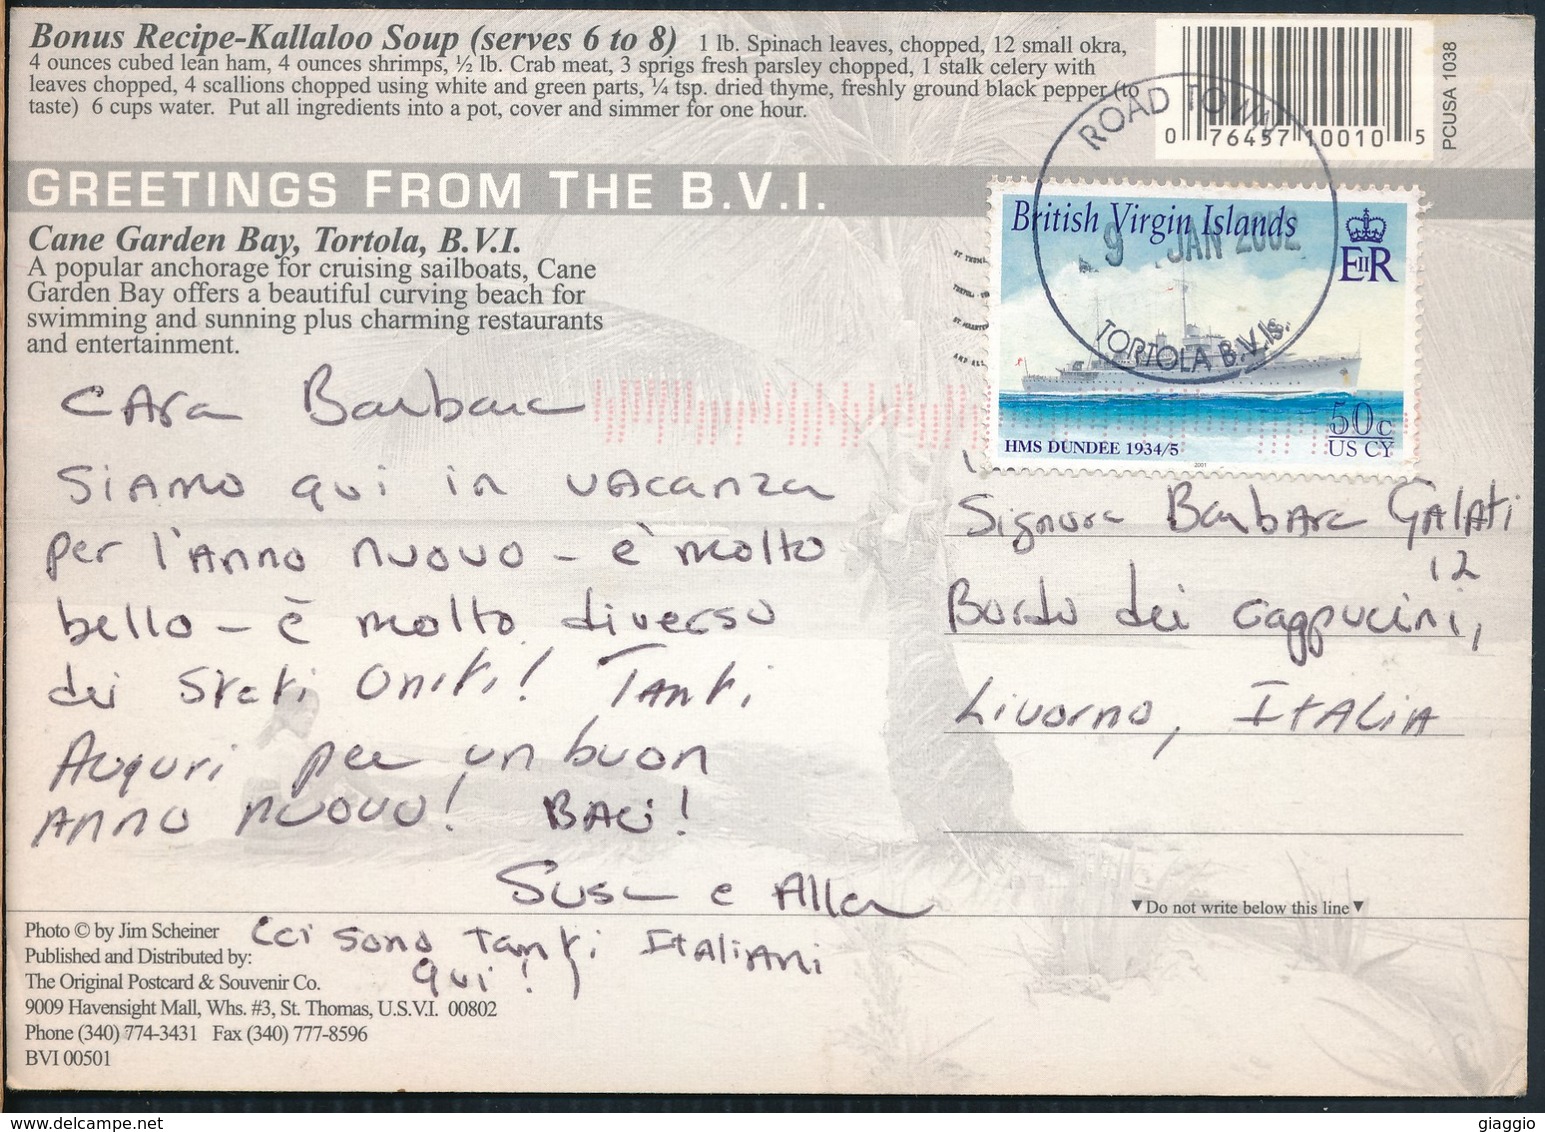 Bonus Recipe-Kallaloo Soup (serves 6 to 8) 1 lb. Spinach leaves, chopped, 12 small okra,
4 ounces cubed lean ham, 4 ounces shrimps, ½ lb. Crab meat, 3 sprigs fresh parsley chopped, 1 stalk celery with
leaves chopped, 4 scallions chopped using white and green parts, ¼ tsp. dried thyme, freshly ground black pepper (to
taste) 6 cups water. Put all ingredients into a pot, cover and simmer for one hour.
0 76457 10010 5
PCUSA 1038
GREETINGS FROM THE B.V.I.
Cane Garden Bay, Tortola, B.V.I.
A popular anchorage for cruising sailboats, Cane
Garden Bay offers a beautiful curving beach for
swimming and sunning plus charming restaurants
and entertainment.
ROAD TOWN
9 JAN 2002
TORTOLA B.V.Is.
British Virgin Islands
EIIR
50c
US CY
HMS DUNDEE 1934/5
2001
Cara Barbara
Siamo qui in vacanza
per l'anno nuovo - è molto
bello - è molto diverso
dei Stati Uniti! Tanti
Auguri per un buon
anno nuovo! Baci!
Susa e Alla
Cci sono tanti Italiani
qui!
Signora Barbara Galati
12
Bordo dei Cappucini,
Livorno, Italia
▼Do not write below this line▼
Photo © by Jim Scheiner
Published and Distributed by:
The Original Postcard & Souvenir Co.
9009 Havensight Mall, Whs. #3, St. Thomas, U.S.V.I. 00802
Phone (340) 774-3431 Fax (340) 777-8596
BVI 00501
delcampe.net
giaggio